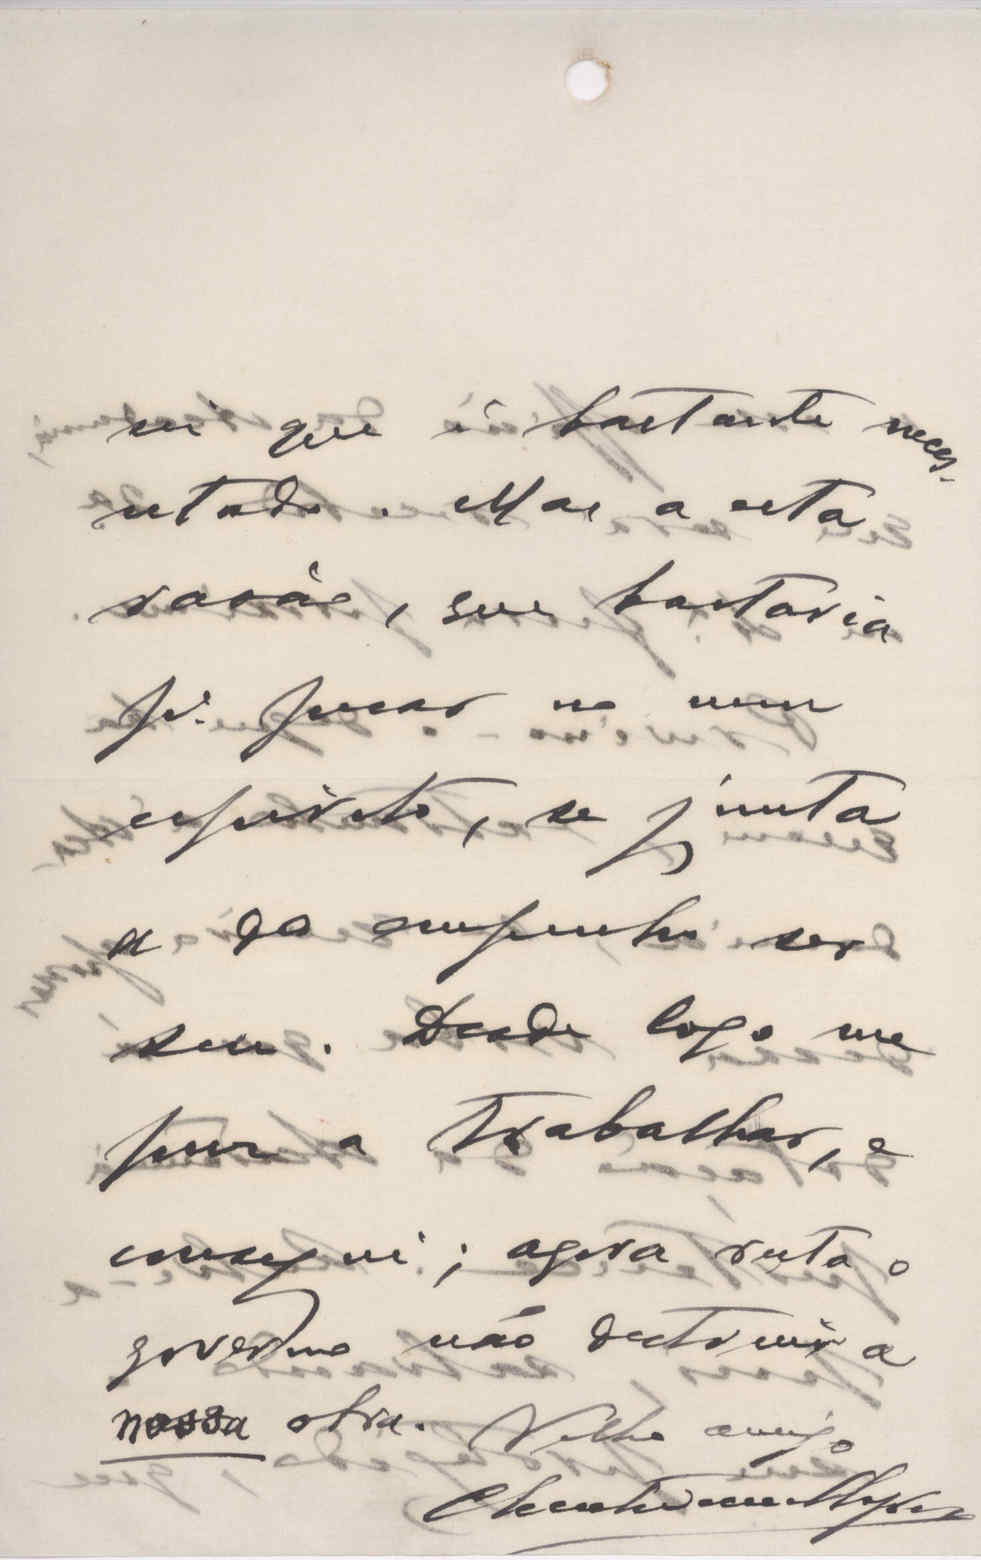 sei que é bastante neces-
sitado. Mas a esta
razão, que bastaria
p.ª pesar no meu
espirito, se junta
a do empenho ser
seu. Desde logo me
puz a trabalhar, e
consegui; agora resta o
governo não destruir a
nossa obra. Velho amigo